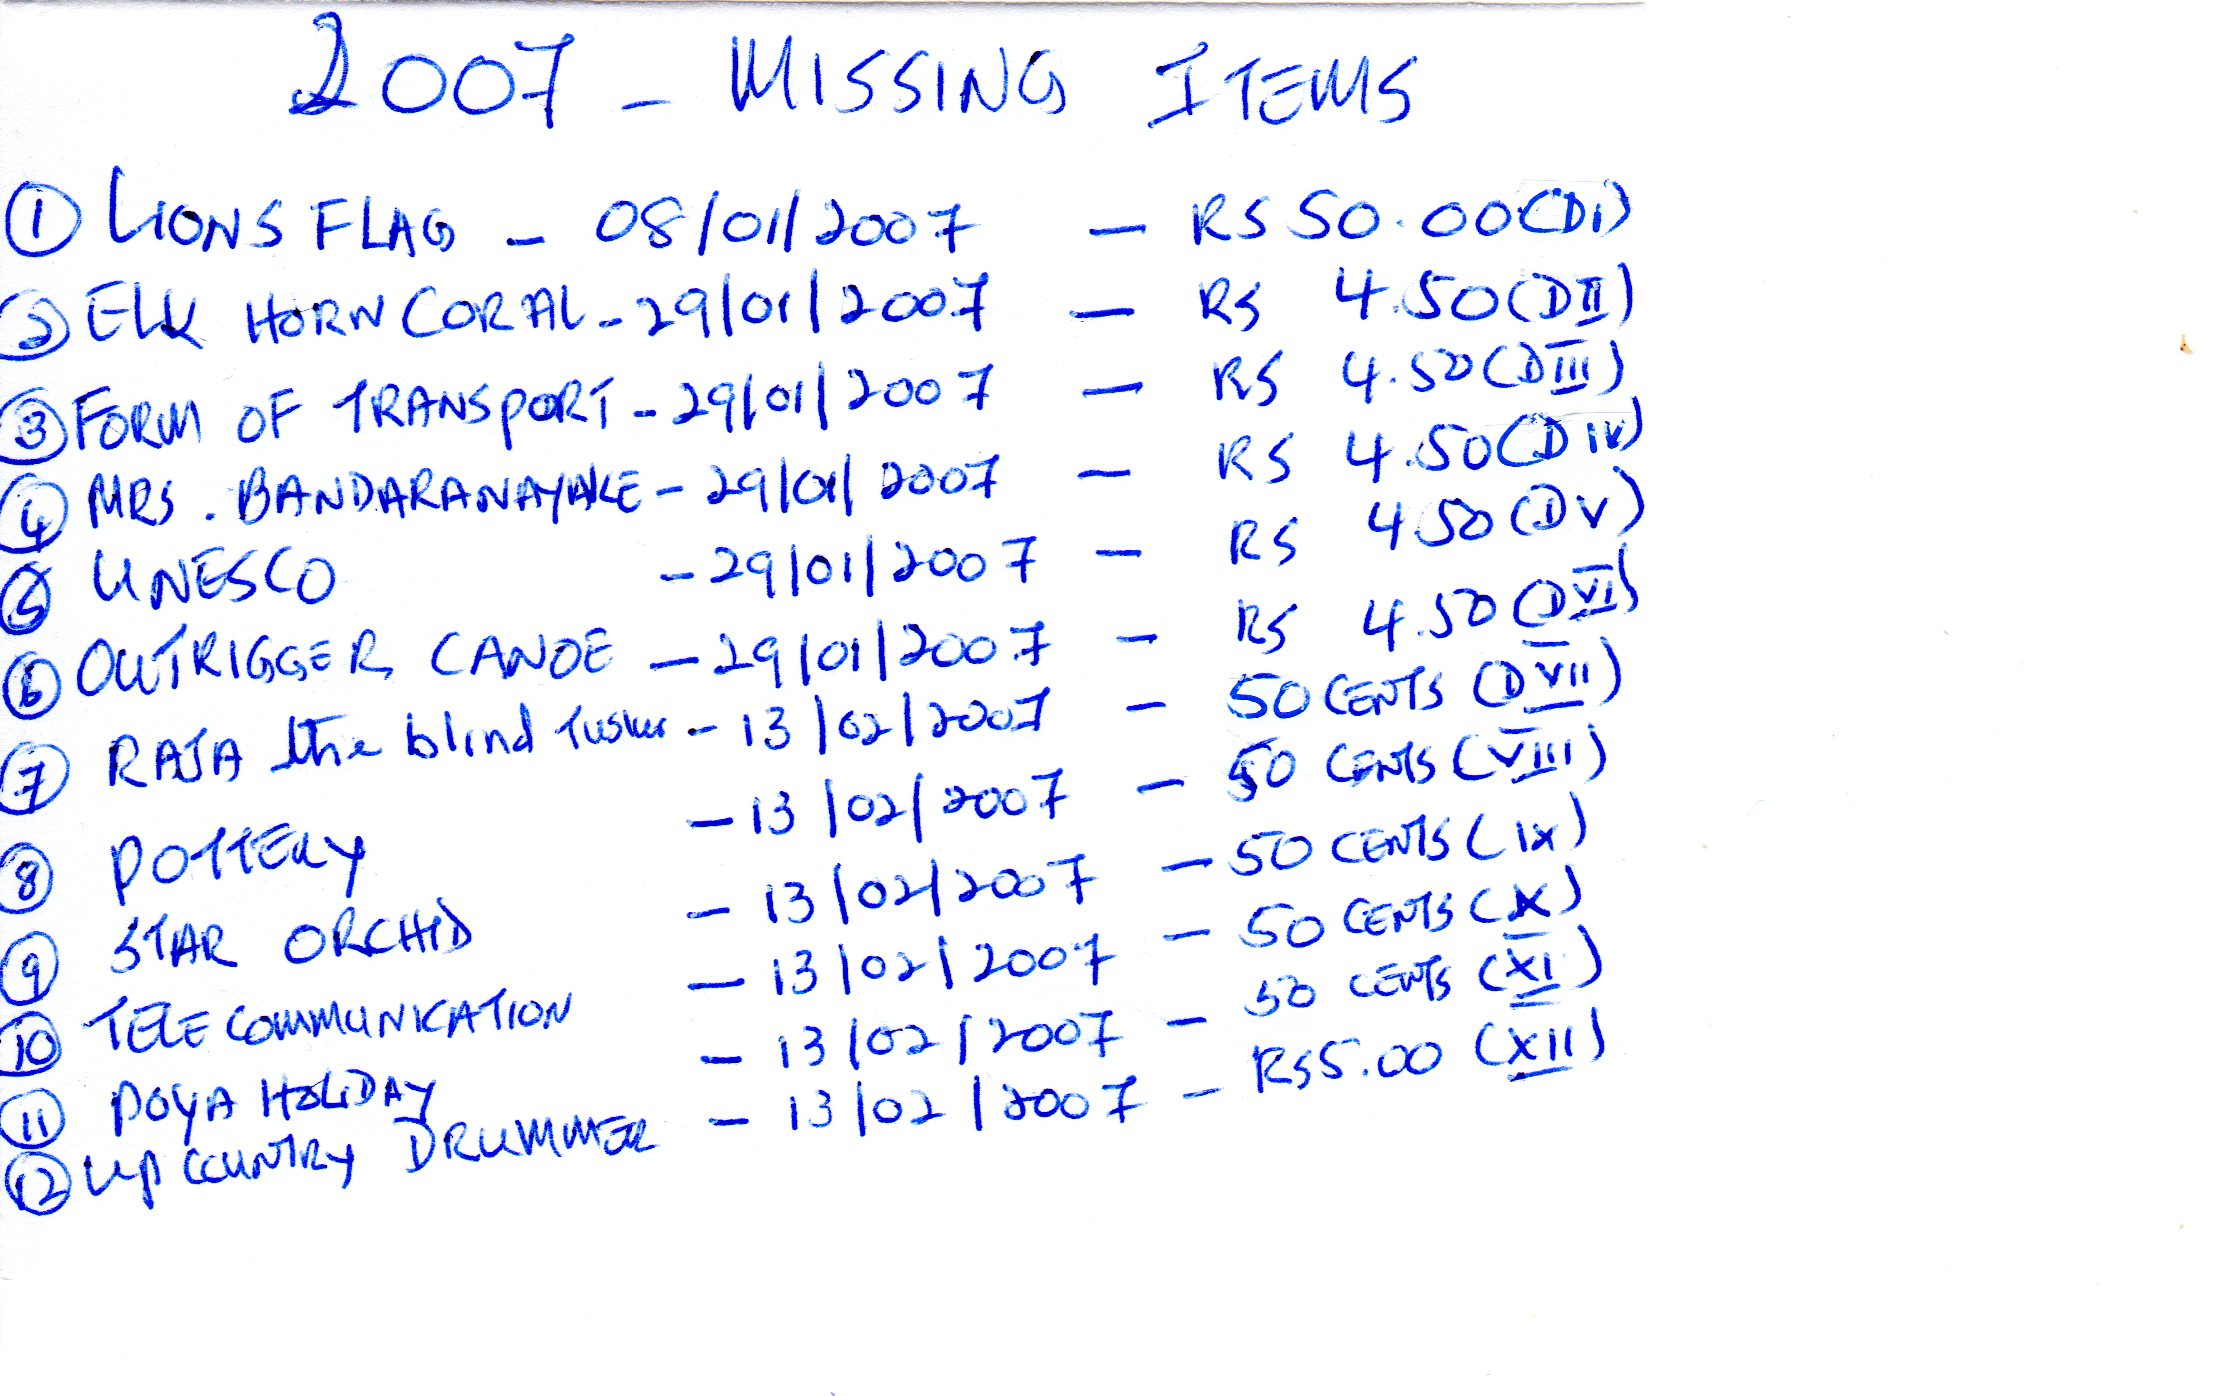 2007 - MISSING ITEMS
1 LIONS FLAG - 08/01/2007 - RS 50.00 (DI)
2 ELK HORN CORAL - 29/01/2007 - RS 4.50 (DII)
3 FORM OF TRANSPORT - 29/01/2007 - RS 4.50 (DIII)
4 MRS. BANDARANAYAKE - 29/01/2007 - RS 4.50 (DIV)
5 UNESCO - 29/01/2007 - RS 4.50 (DV)
6 OUTRIGGER CANOE - 29/01/2007 - RS 4.50 (DVI)
7 RAJA the blind Tusker - 13/02/2007 - 50 CENTS (DVII)
8 POTTERY - 13/02/2007 - 50 CENTS (VIII)
9 STAR ORCHID - 13/02/2007 - 50 CENTS (IX)
10 TELE COMMUNICATION - 13/02/2007 - 50 CENTS (X)
11 POYA HOLIDAY - 13/02/2007 - 50 CENTS (XI)
12 UP COUNTRY DRUMMER - 13/02/2007 - RS 5.00 (XII)